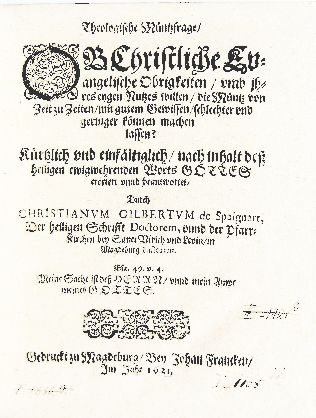 Theologische Müntzfrage/
OB Christliche Ev-
angelische Obrigkeiten / vmb jh-
res eigen Nutzes willen / die Müntz von
Zeit zu Zeiten / mit gutem Gewissen / schlechter vnd
geringer können machen
lassen?
Kürtzlich vnd einfältiglich / nach inhalt deß
heiligen ewigwehrenden Worts GOTTES
erörtert vnnd beantwortet /
Durch
CHRISTIANVM GILBERTVM de Spaignart,
Der heiligen Schrifft Doctorem, vnnd der Pfarr-
Kirchen bey Sanct Vlrich vnd Levin in
Magdeburg Pastorem.
Esa. 49. v. 4.
Meine Sache ist deß HERRN / vnnd mein Ampt
meines GOTTES.
Gedruckt zu Magdeburg / Bey Johan Francken /
Im Jahr 1621.